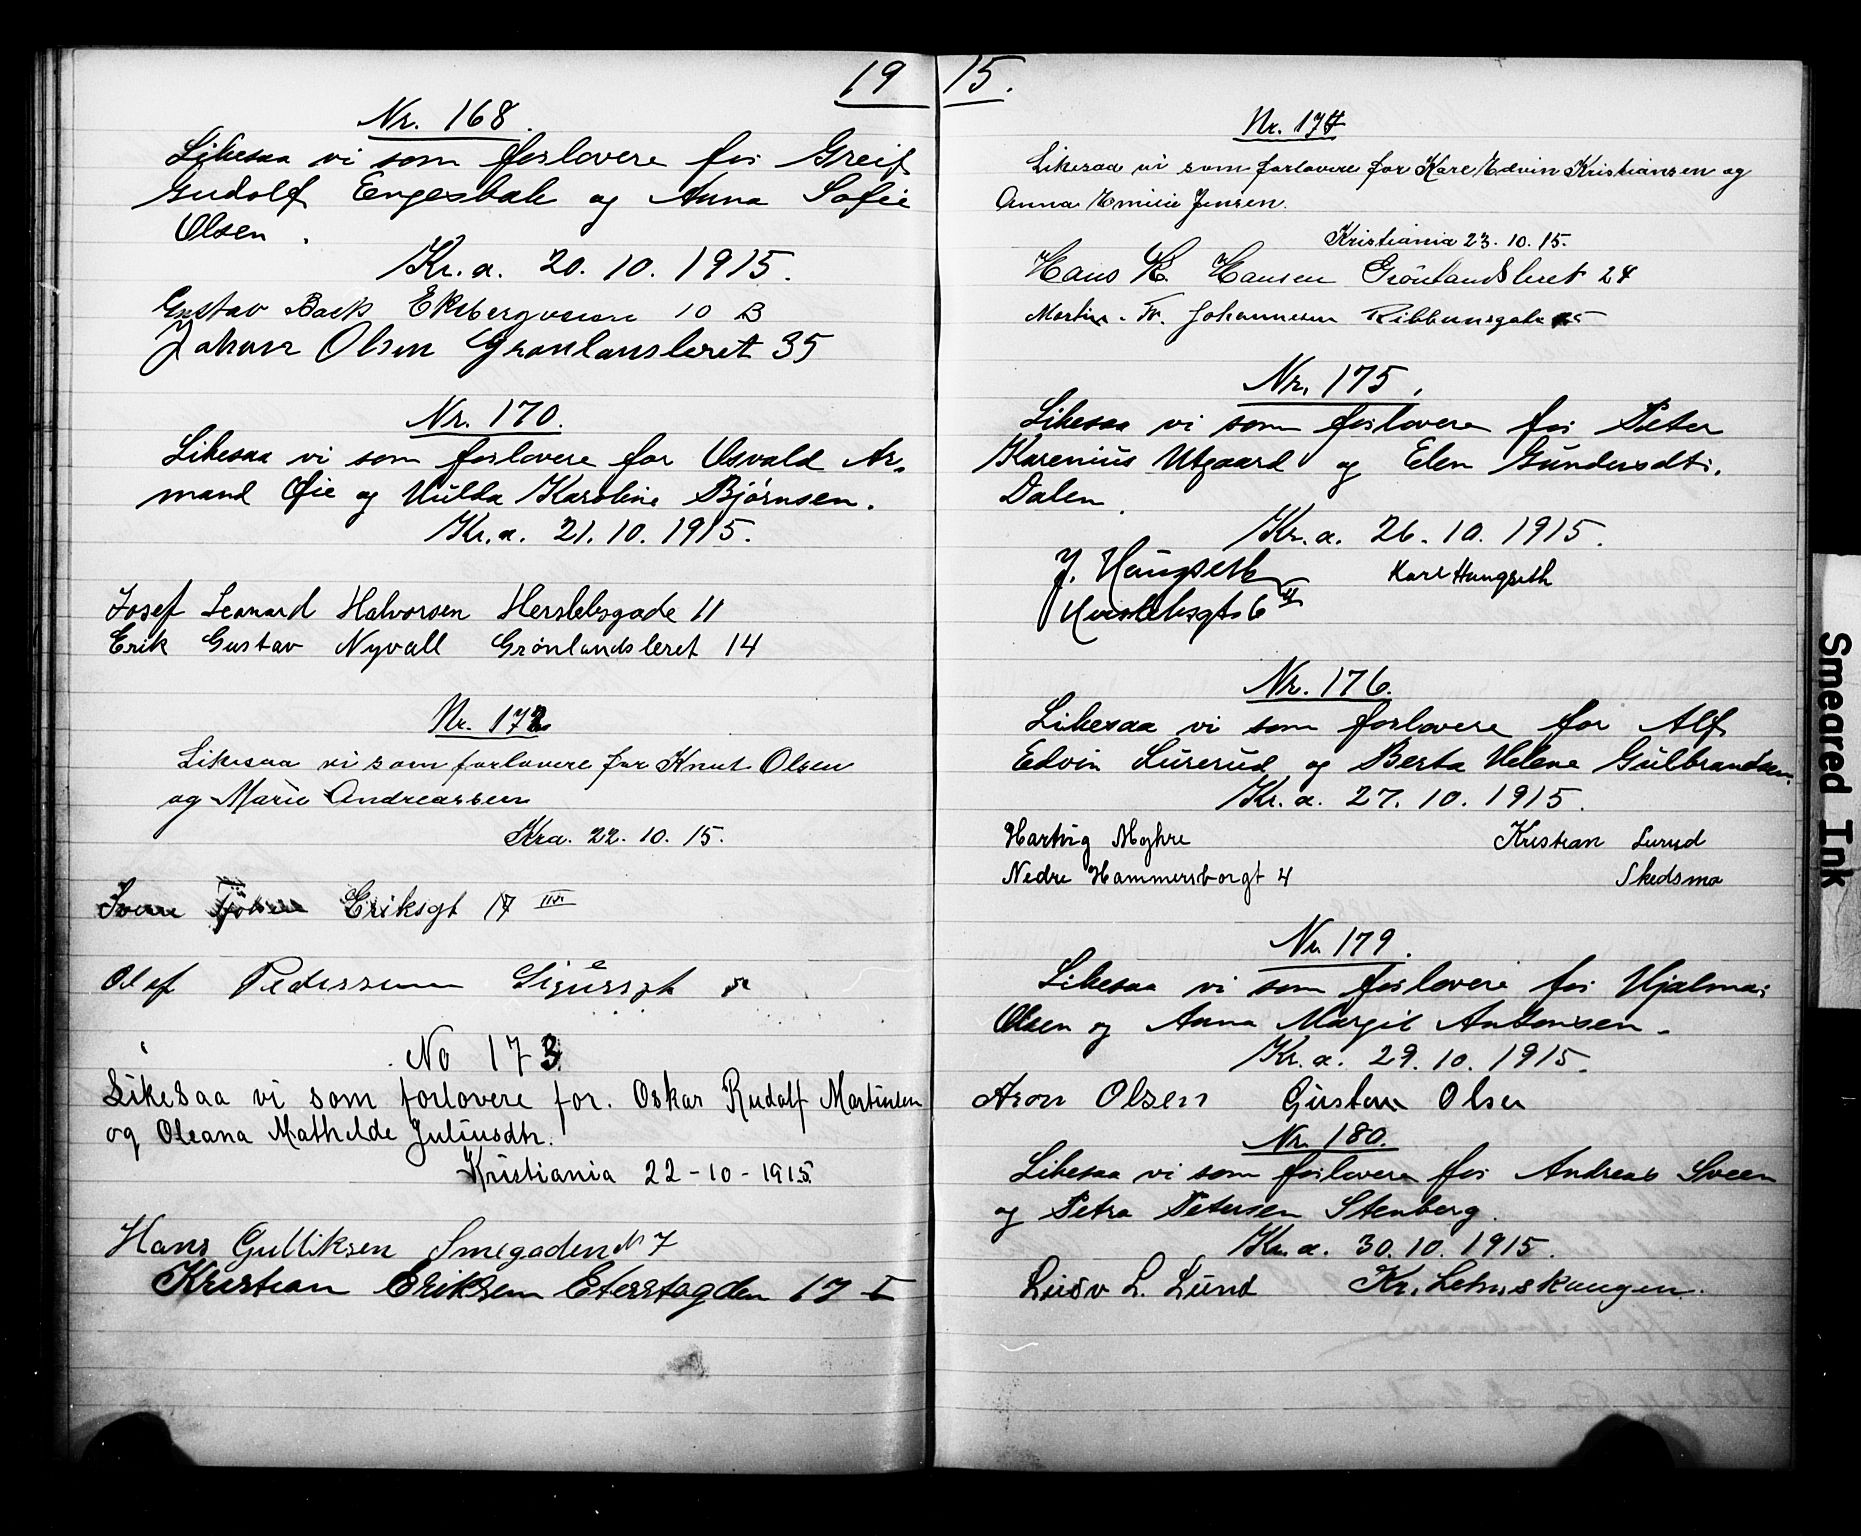 19 15.
Nr. 168.
Likesaa vi som forlovere for Greif
Gudolf Engesbak og Anna Sofie
Olsen.
Kr.a. 20.10.1915.
Gustav Back Ekebergveien 10 B
Johan Olsen Grønlansleret 35
Nr. 170.
Likesaa vi som forlovere for Osvald Ar-
mand Øie og Hulda Karoline Bjørnsen.
Kr.a. 21.10.1915.
Josef Leonard Halvorsen Herslebsgade 11
Erik Gustav Nyvall Grönlandsleret 14
Nr. 172
Likesaa vi som forlovere for Knut Olsen
og Marie Andreassen
Kra. 22.10.15.
Eriksgt 17 III
Olaf Pedersen
No 173
Likesaa vi som forlovere for. Oskar Rudolf Martinsen
og Oleana Mathilde Juliusdtr.
Kristiania 22-10-1915
Hans Gulliksen Smegaden N 7
Kristian Eriksen Eterstagden 17 I
Nr. 174
Likesaa vi som forlovere for Kare Edvin Kristiansen og
Anna Emilie Jensen.
Kristiania 23.10.15.
Hans K. Hansen Grönlandsleret 24
Martin Fr. Johannesen Ribbunsgate
Nr. 175.
Likesaa vi som forlovere for Peter
Karenius Utgaard og Elen Gundersdtr.
Dalen.
Kr.a. 26.10.1915.
J. Haugseth Karl Haugseth
Herslebsgt 6
Nr. 176.
Likesaa vi som forlovere for Alf
Edvin Lurerud og Berta Helene Gulbrandsen.
Kr.a. 27.10.1915.
Hartvig Myhre Kristian Lurud
Nedre Hammersborgt 4 Skedsmo
Nr. 179.
Likesaa vi som forlovere for Hjalmar
Olsen og Anna Margit Antonsen.
Kr.a. 29.10.1915.
Aron Olsen Gustav Olsen
Nr. 180.
Likesaa vi som forlovere for Andreas Sveen
og Petra Petersen Stenberg.
Kr.a. 30.10.1915.
L. Lund Kr. Lehnskaugen.
Smeared Ink